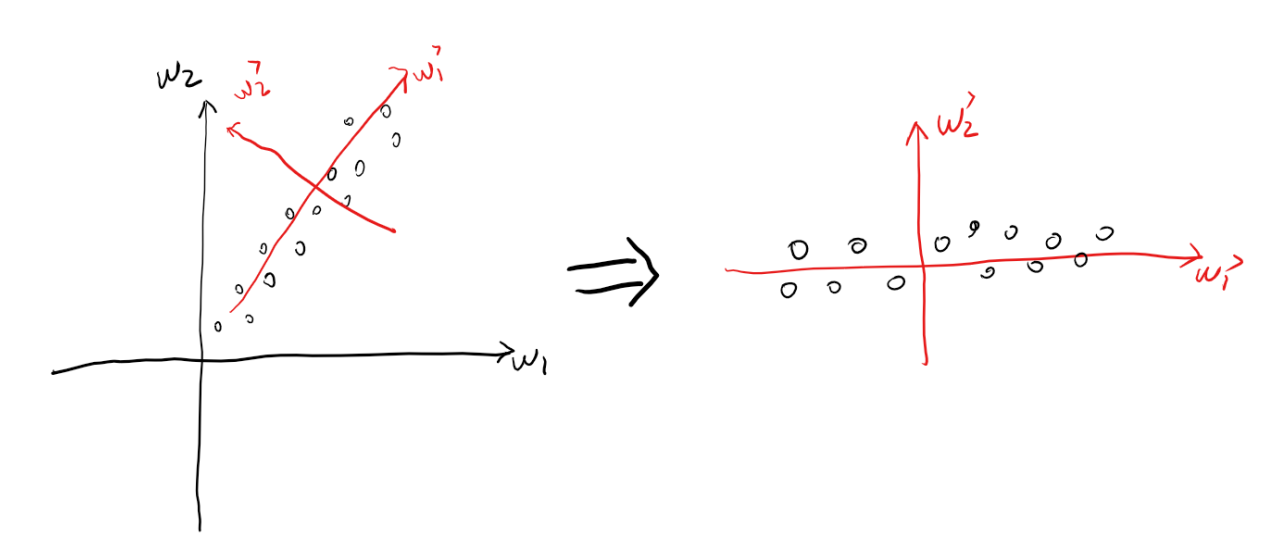 w₂
w₂'
w₁'
w₁
w₂'
w₁'